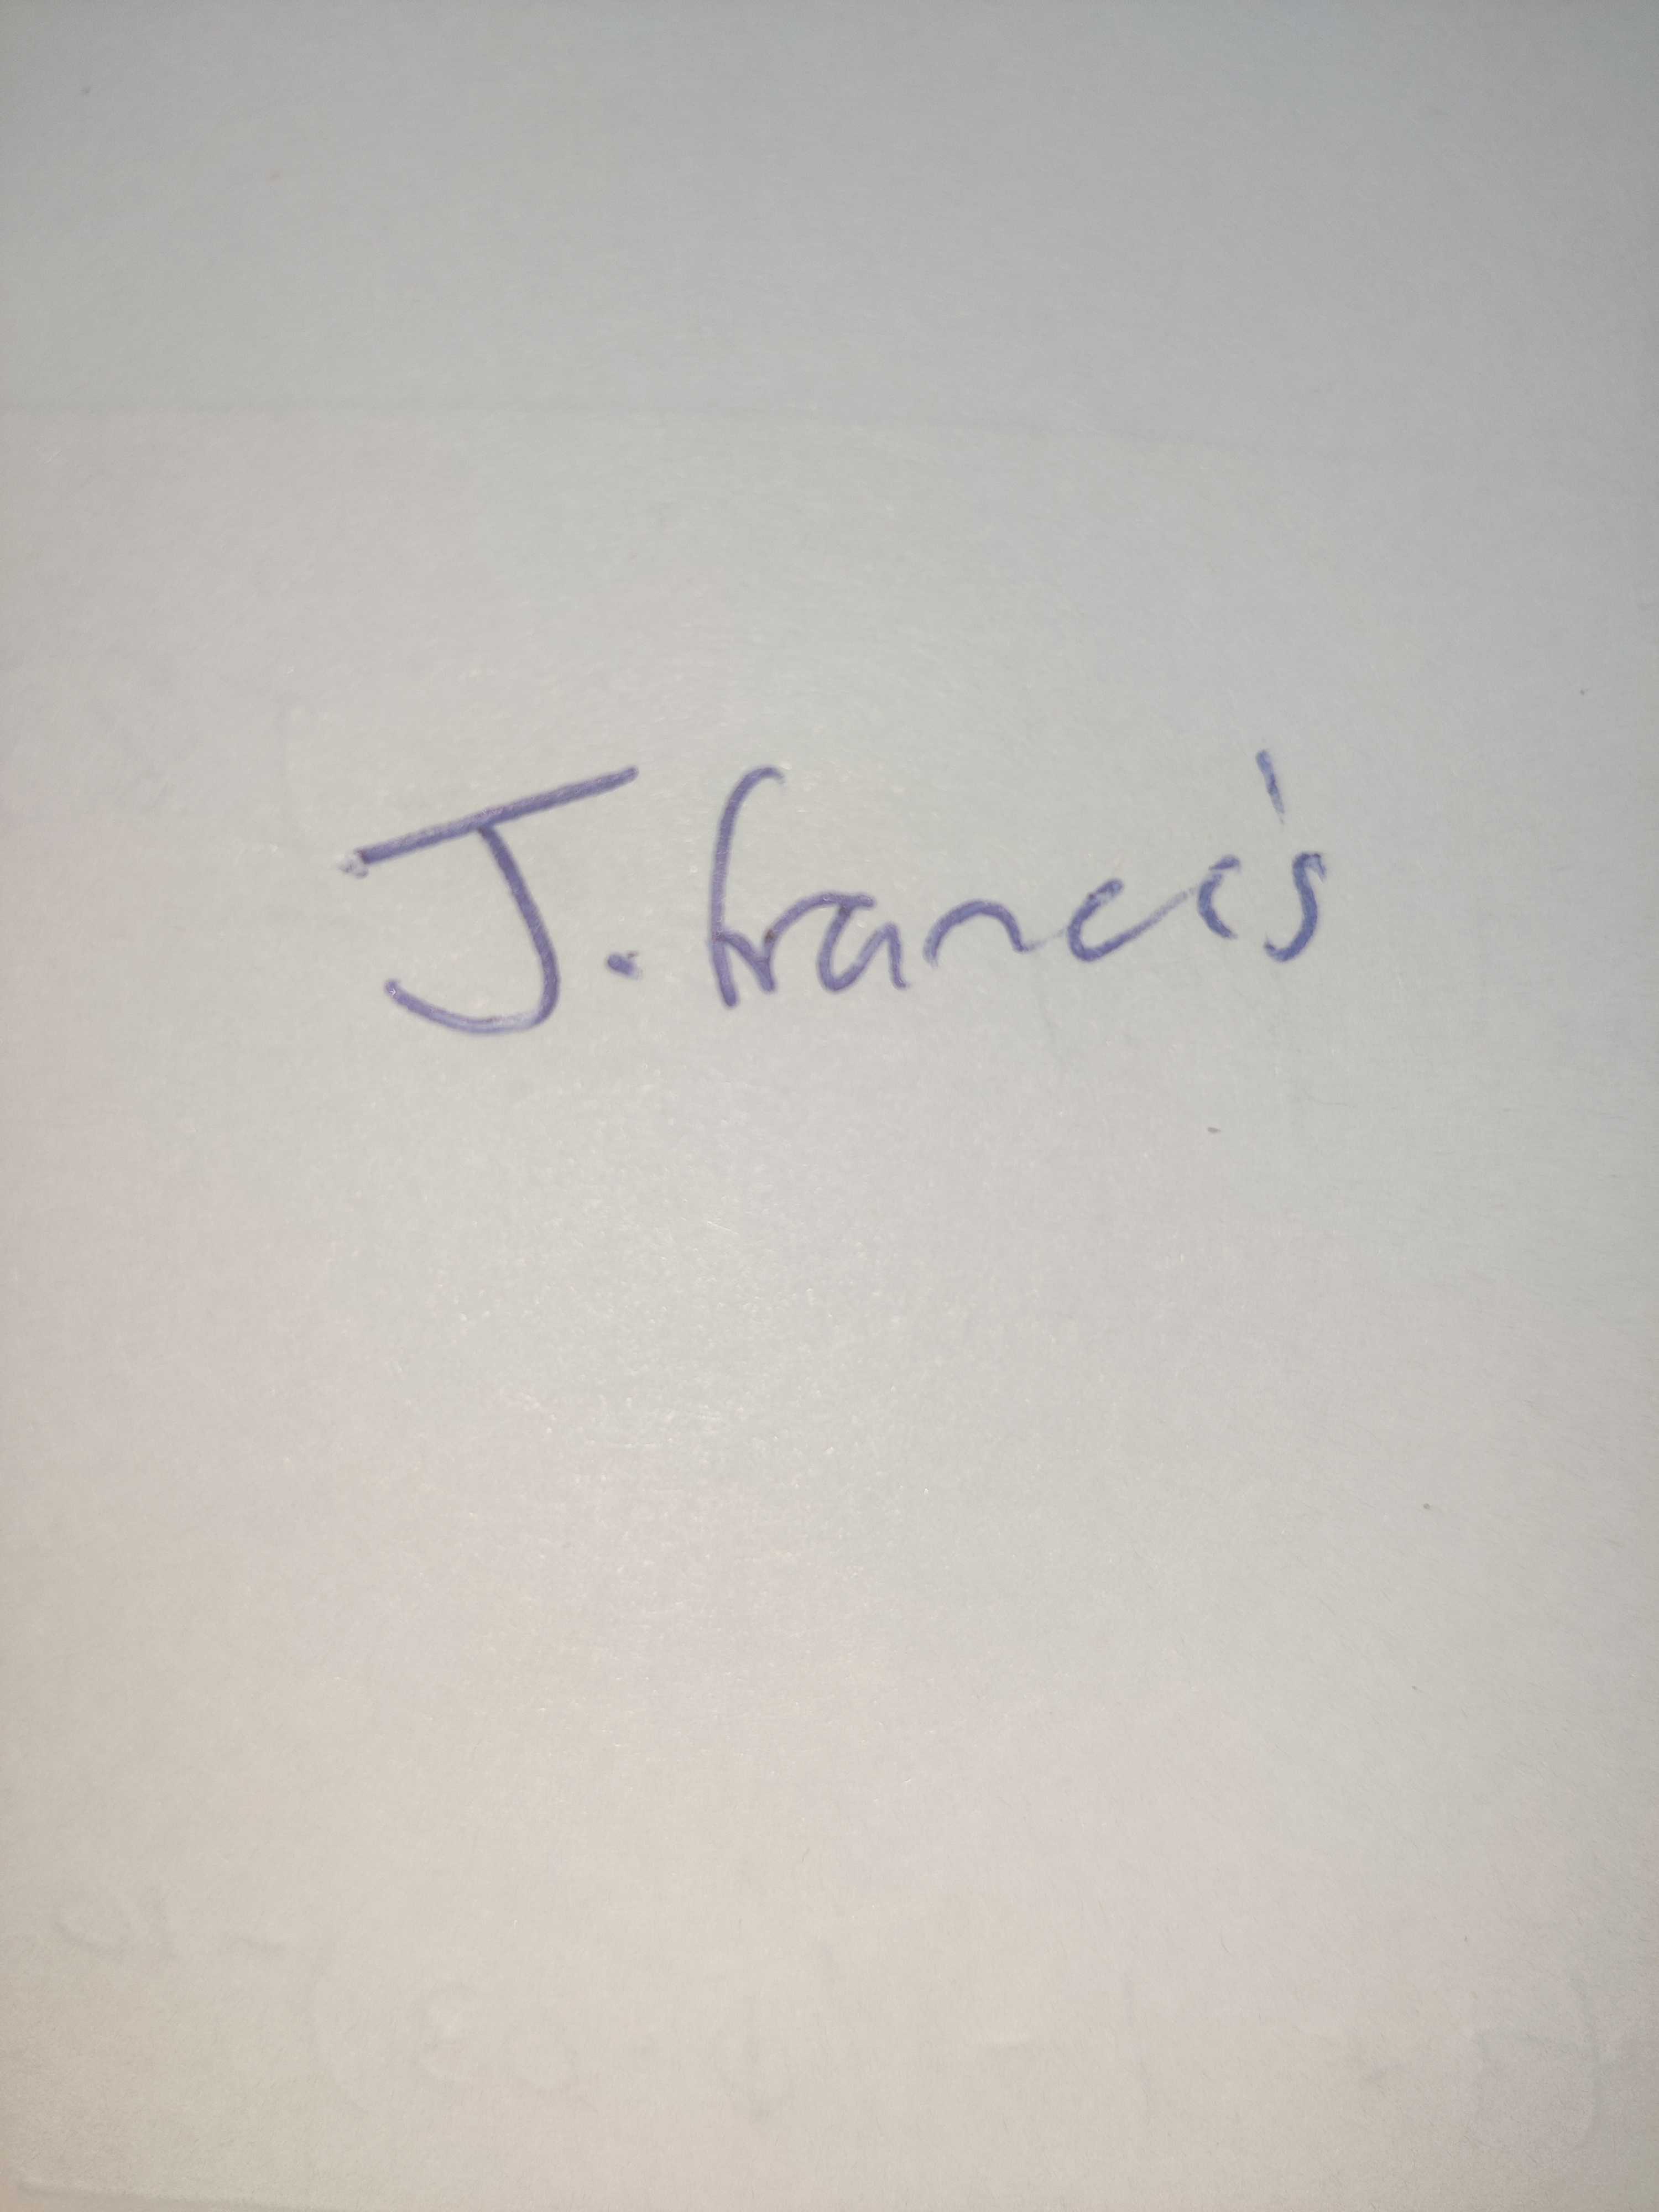 J. francis